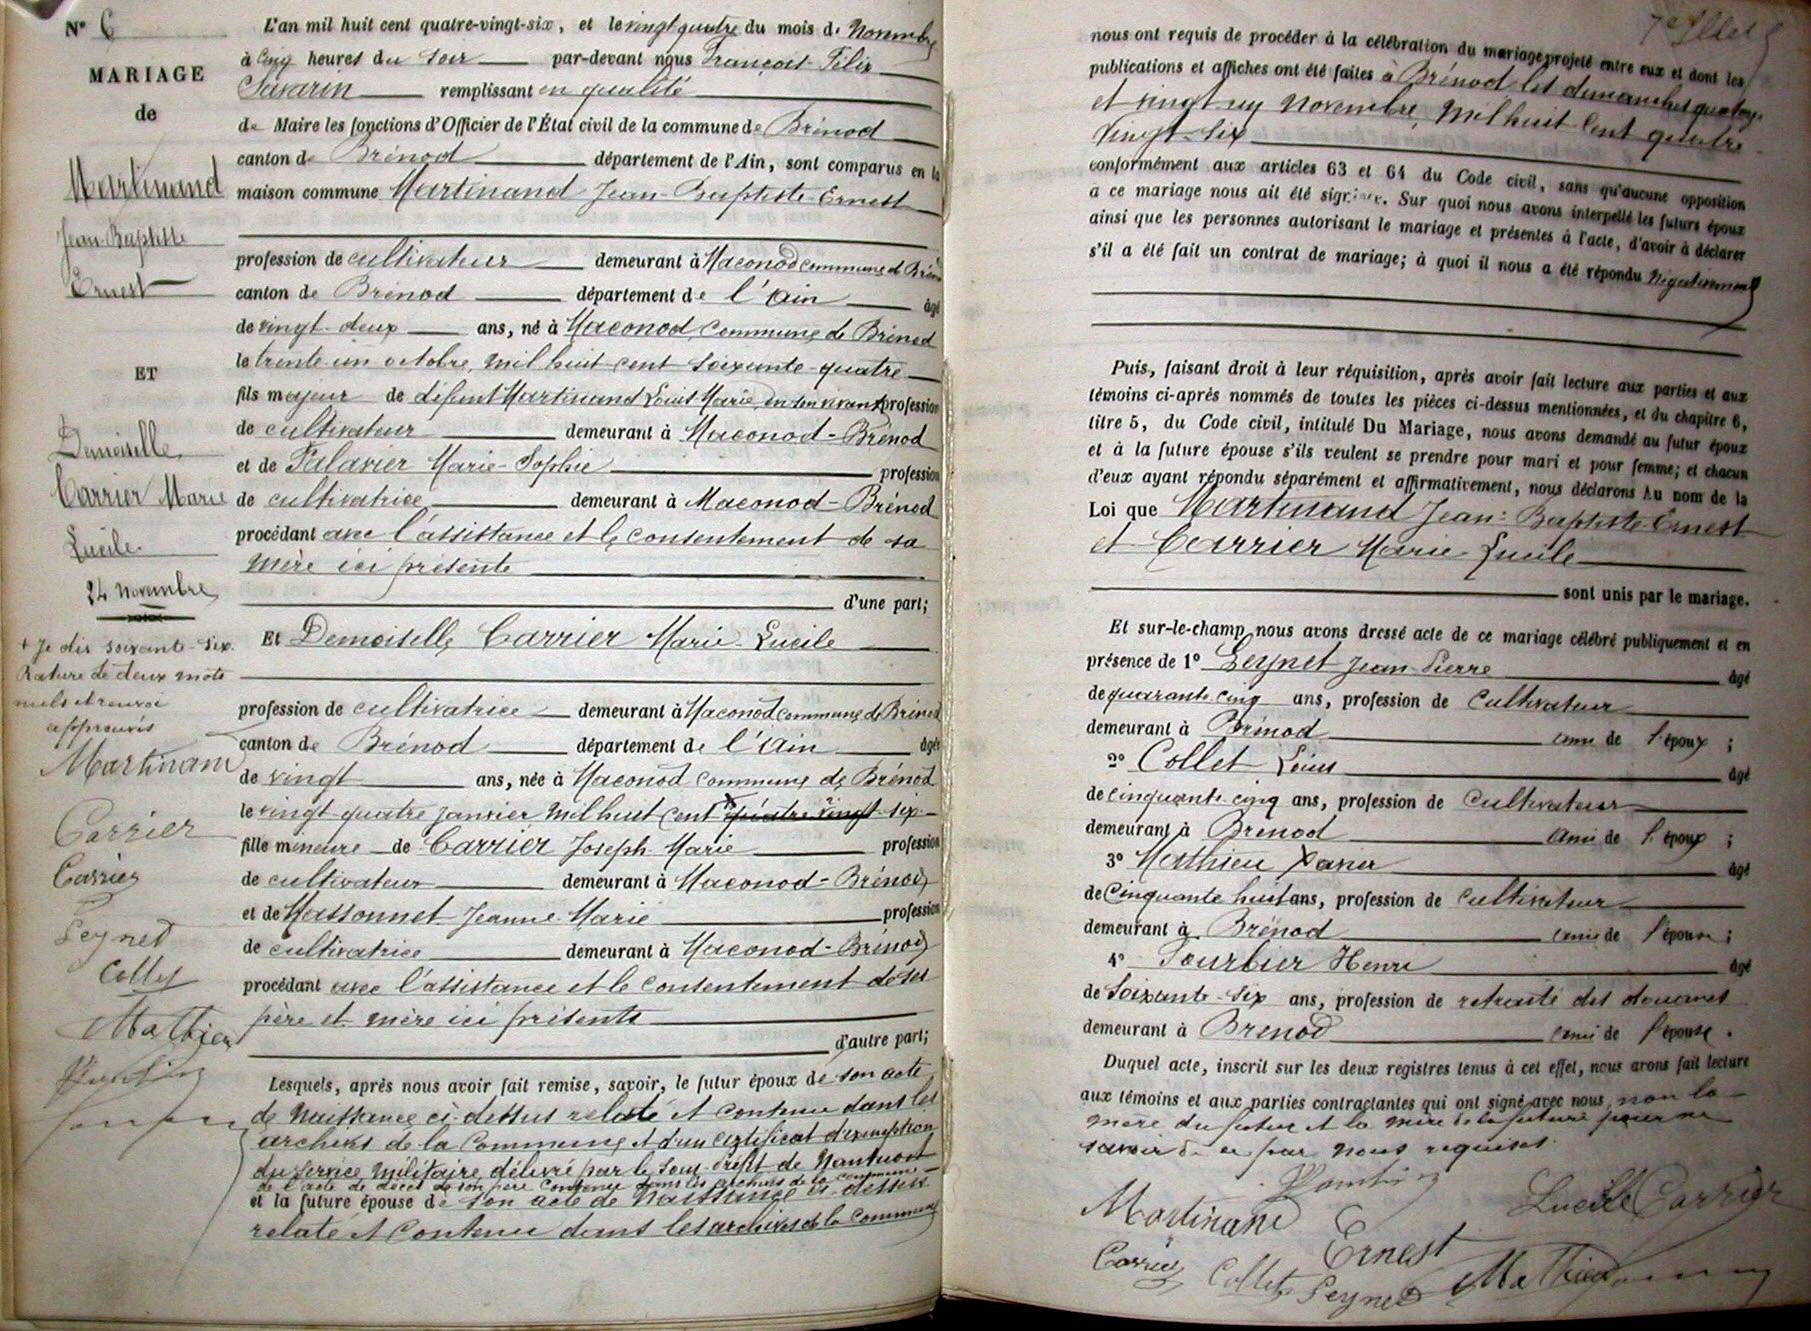 N° 6
MARIAGE
de
Martinand
Jean-Baptiste
Ernest
ET
Demoiselle
Carrier Marie
Lucile
24 Novembre
+ Je dis soixante-six.
Rature de deux mots
nuls et renvoi
approuvés
Martinand
Carrier
Carrier
Seynet
Collet
Mathieu
L'an mil huit cent quatre-vingt-six, et le vingt quatre du mois de Novembre
à cinq heures du soir par-devant nous François Félix
Savarin remplissant en qualité
de Maire les fonctions d'Officier de l'État civil de la commune de Brénod
canton de Brénod département de l'Ain, sont comparus en la
maison commune Martinand Jean-Baptiste-Ernest
profession de cultivateur demeurant à Maconod commune de Brénod
canton de Brénod département de l'Ain âgé
de vingt-deux ans, né à Maconod, commune de Brénod
le trente un octobre, mil huit cent soixante-quatre
fils majeur de défunt Martinand Louis Marie, en son vivant profession
de cultivateur demeurant à Maconod-Brénod
et de Palavier Marie-Sophie profession
de cultivatrice demeurant à Maconod-Brénod
procédant avec l'assistance et le consentement de sa
mère ici présente
d'une part;
Et Demoiselle Carrier Marie-Lucile
profession de cultivatrice demeurant à Maconod commune de Brénod
canton de Brénod département de l'Ain âgée
de vingt ans, née à Maconod commune de Brénod
le vingt-quatre janvier mil huit cent + quatre vingt-six
fille mineure de Carrier Joseph-Marie profession
de cultivateur demeurant à Maconod-Brénod
et de Massonnet Jeanne Marie profession
de cultivatrice demeurant à Maconod-Brénod
procédant avec l'assistance et le consentement de ses
père et mère ici présents
d'autre part;
Lesquels, après nous avoir fait remise, savoir, le futur époux de son acte
de Naissance ci-dessus relaté et contenu dans les
archives de la Commune et d'un certificat d'exemption
du service Militaire délivré par le Sous-Préfet de Nantua et
de l'acte de décès de son père contenu dans les archives de la commune
et la future épouse de son acte de Naissance ci-dessus
relaté et contenu dans les archives de la Commune
7e fllet
nous ont requis de procéder à la célébration du mariage projeté entre eux et dont les
publications et affiches ont été faites à Brénod les dimanches quatorze
et vingt un Novembre, Mil huit cent quatre
vingt-six
conformément aux articles 63 et 64 du Code civil, sans qu'aucune opposition
à ce mariage nous ait été signifiée. Sur quoi nous avons interpellé les futurs époux
ainsi que les personnes autorisant le mariage et présentes à l'acte, d'avoir à déclarer
s'il a été fait un contrat de mariage; à quoi il nous a été répondu Négativement
Puis, faisant droit à leur réquisition, après avoir fait lecture aux parties et aux
témoins ci-après nommés de toutes les pièces ci-dessus mentionnées, et du chapitre 6,
titre 5, du Code civil, intitulé Du Mariage, nous avons demandé au futur époux
et à la future épouse s'ils veulent se prendre pour mari et pour femme; et chacun
d'eux ayant répondu séparément et affirmativement, nous déclarons Au nom de la
Loi que Martinand Jean-Baptiste-Ernest
et Carrier Marie-Lucile
sont unis par le mariage.
Et sur-le-champ nous avons dressé acte de ce mariage célébré publiquement et en
présence de 1° Seynet Jean-Pierre âgé
de quarante-cinq ans, profession de cultivateur
demeurant à Brénod ami de l'époux ;
2° Collet Louis âgé
de cinquante-cinq ans, profession de cultivateur
demeurant à Brénod ami de l'époux ;
3° Mathieu Xavier âgé
de Cinquante huit ans, profession de cultivateur
demeurant à Brénod ami de l'épouse ;
4° Tourbier Henri âgé
de Soixante-six ans, profession de retraité des douanes
demeurant à Brénod ami de l'épouse .
Duquel acte, inscrit sur les deux registres tenus à cet effet, nous avons fait lecture
aux témoins et aux parties contractantes qui ont signé avec nous, non la
mère du futur et la mère de la future pour ne
savoir de ce par nous requises
Martinand Ernest
Lucile Carrier
Carrier Collet Seynet Mathieu